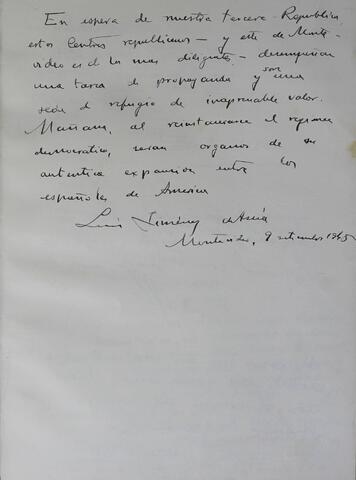 En espera de nuestra tercera República
estos Centros republicanos – y este de Monte-
video es de los mas diligentes – desempeñan
una tarea de propaganda y son una
sede de refugio de inapreciable valor.
Mañana, al reinstaurarse el regimen
democratico, seran organos de su
autentica expansión entre los
españoles de America
Luis Jiménez de Asúa
Montevideo, 9 setiembre 1945